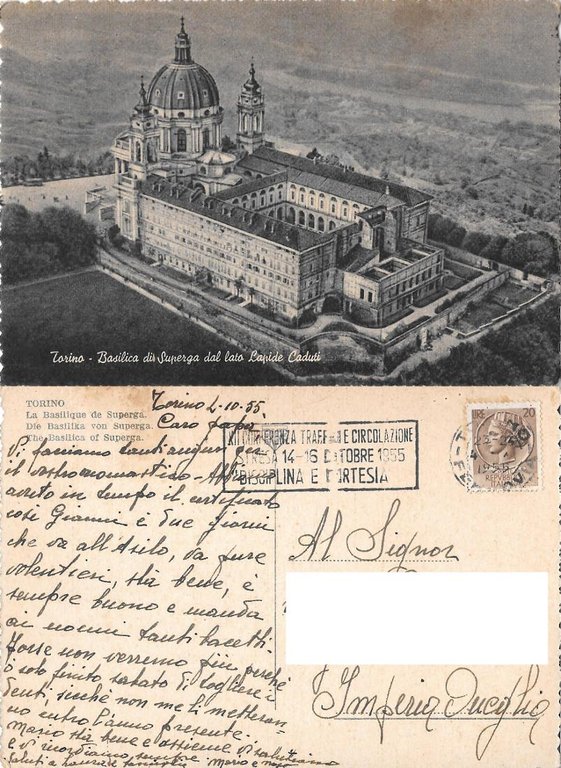 Torino - Basilica di Superga dal lato Lapide Caduti
TORINO
La Basilique de Superga.
Die Basilika von Superga.
The Basilica of Superga.
Torino 2-10-55
Caro papà
Vi facciamo tanti auguri per
il vostro onomastico. Abbiamo
avuto in tempo il certificato
così Gianni è due giorni
che va all'Asilo, va pure
volentieri, stà bene, è
sempre buono e manda
ai nonni tanti bacetti.
Forse non verremo più perché
o solo finito sabato di togliere i
denti, sicché non me li metteran-
no entro l'anno presente.
Mario stà bene e assieme vi salutiamo
e vi ricordiamo sempre. Mario e
Saluti a e famiglia
XII CONFERENZA TRAFFICO E CIRCOLAZIONE
STRESA 14-16 OTTOBRE 1955
DISCIPLINA E CORTESIA
20
1955
Al Signor
Imperia Oneglia